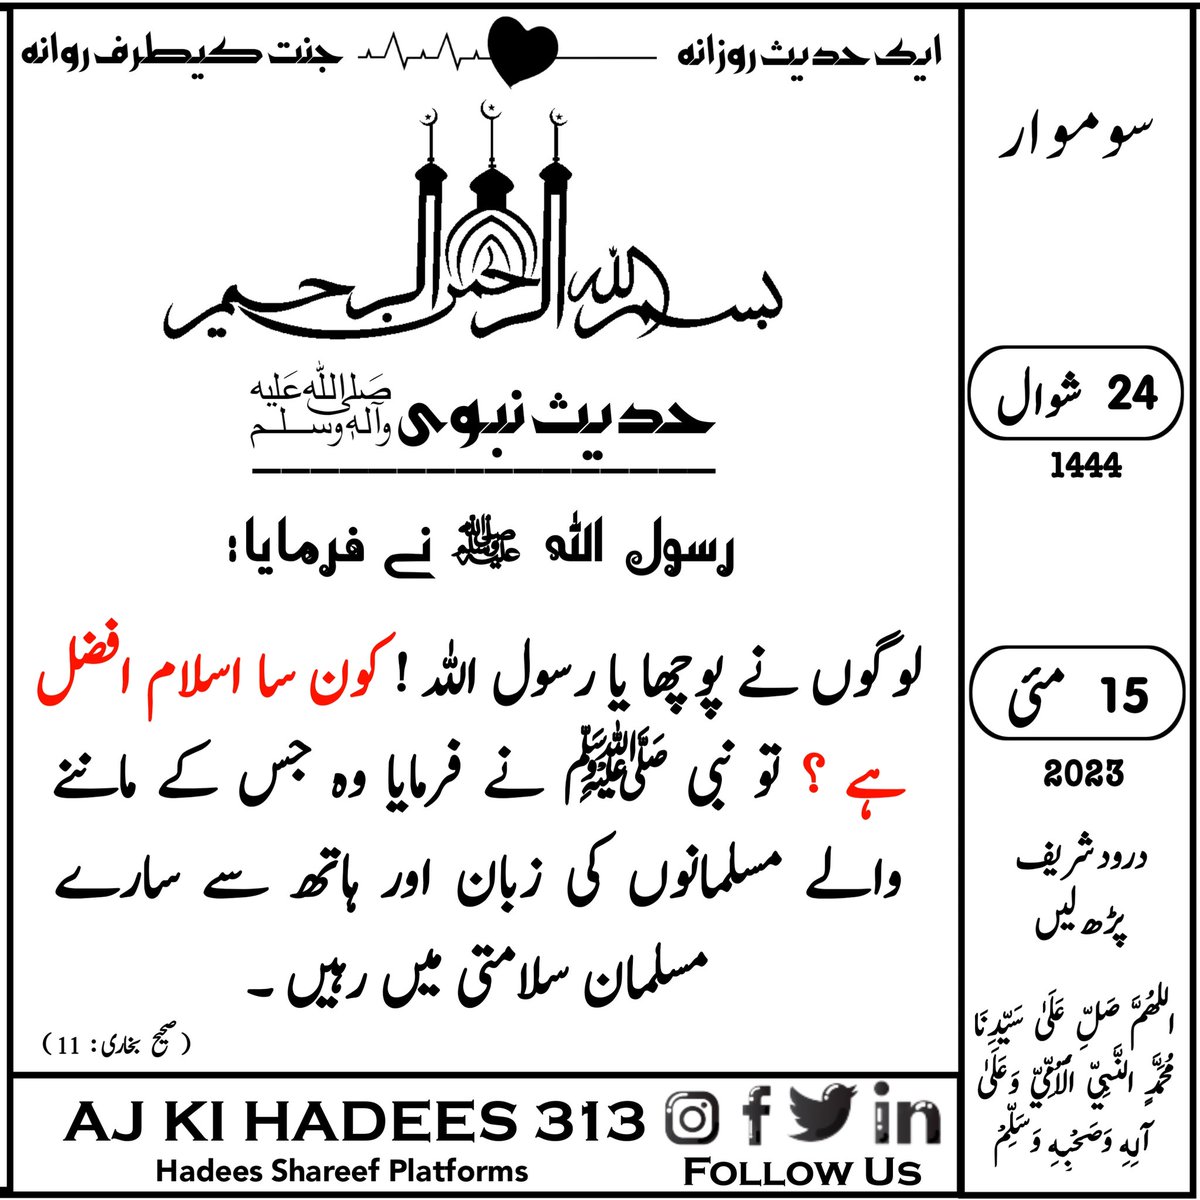 ایک حدیث روزانہ جنت کیطرف روانہ
بسم اللہ الرحمن الرحیم
حدیث نبوی صَلَّی اللہُ عَلَیہِ وَآلِہٖ وَسَلَّم
رسول اللہ ﷺ نے فرمایا:
لوگوں نے پوچھا یا رسول اللہ ! کون سا اسلام افضل
ہے ؟ تو نبی ﷺ نے فرمایا وہ جس کے ماننے
والے مسلمانوں کی زبان اور ہاتھ سے سارے
مسلمان سلامتی میں رہیں ۔
(صحیح بخاری: 11)
سوموار
24 شوال
1444
15 مئی
2023
درود شریف
پڑھ لیں
اللھُمَّ صَلِّ عَلَیٰ سَیِّدِنَا
مُحَمَّدٍ النَّبِیِّ الْاُمِّیِّ وَعَلَیٰ
آلِهِ وَصَحْبِهِ وَسَلِّمْ
AJ KI HADEES 313
Hadees Shareef Platforms
FOLLOW US